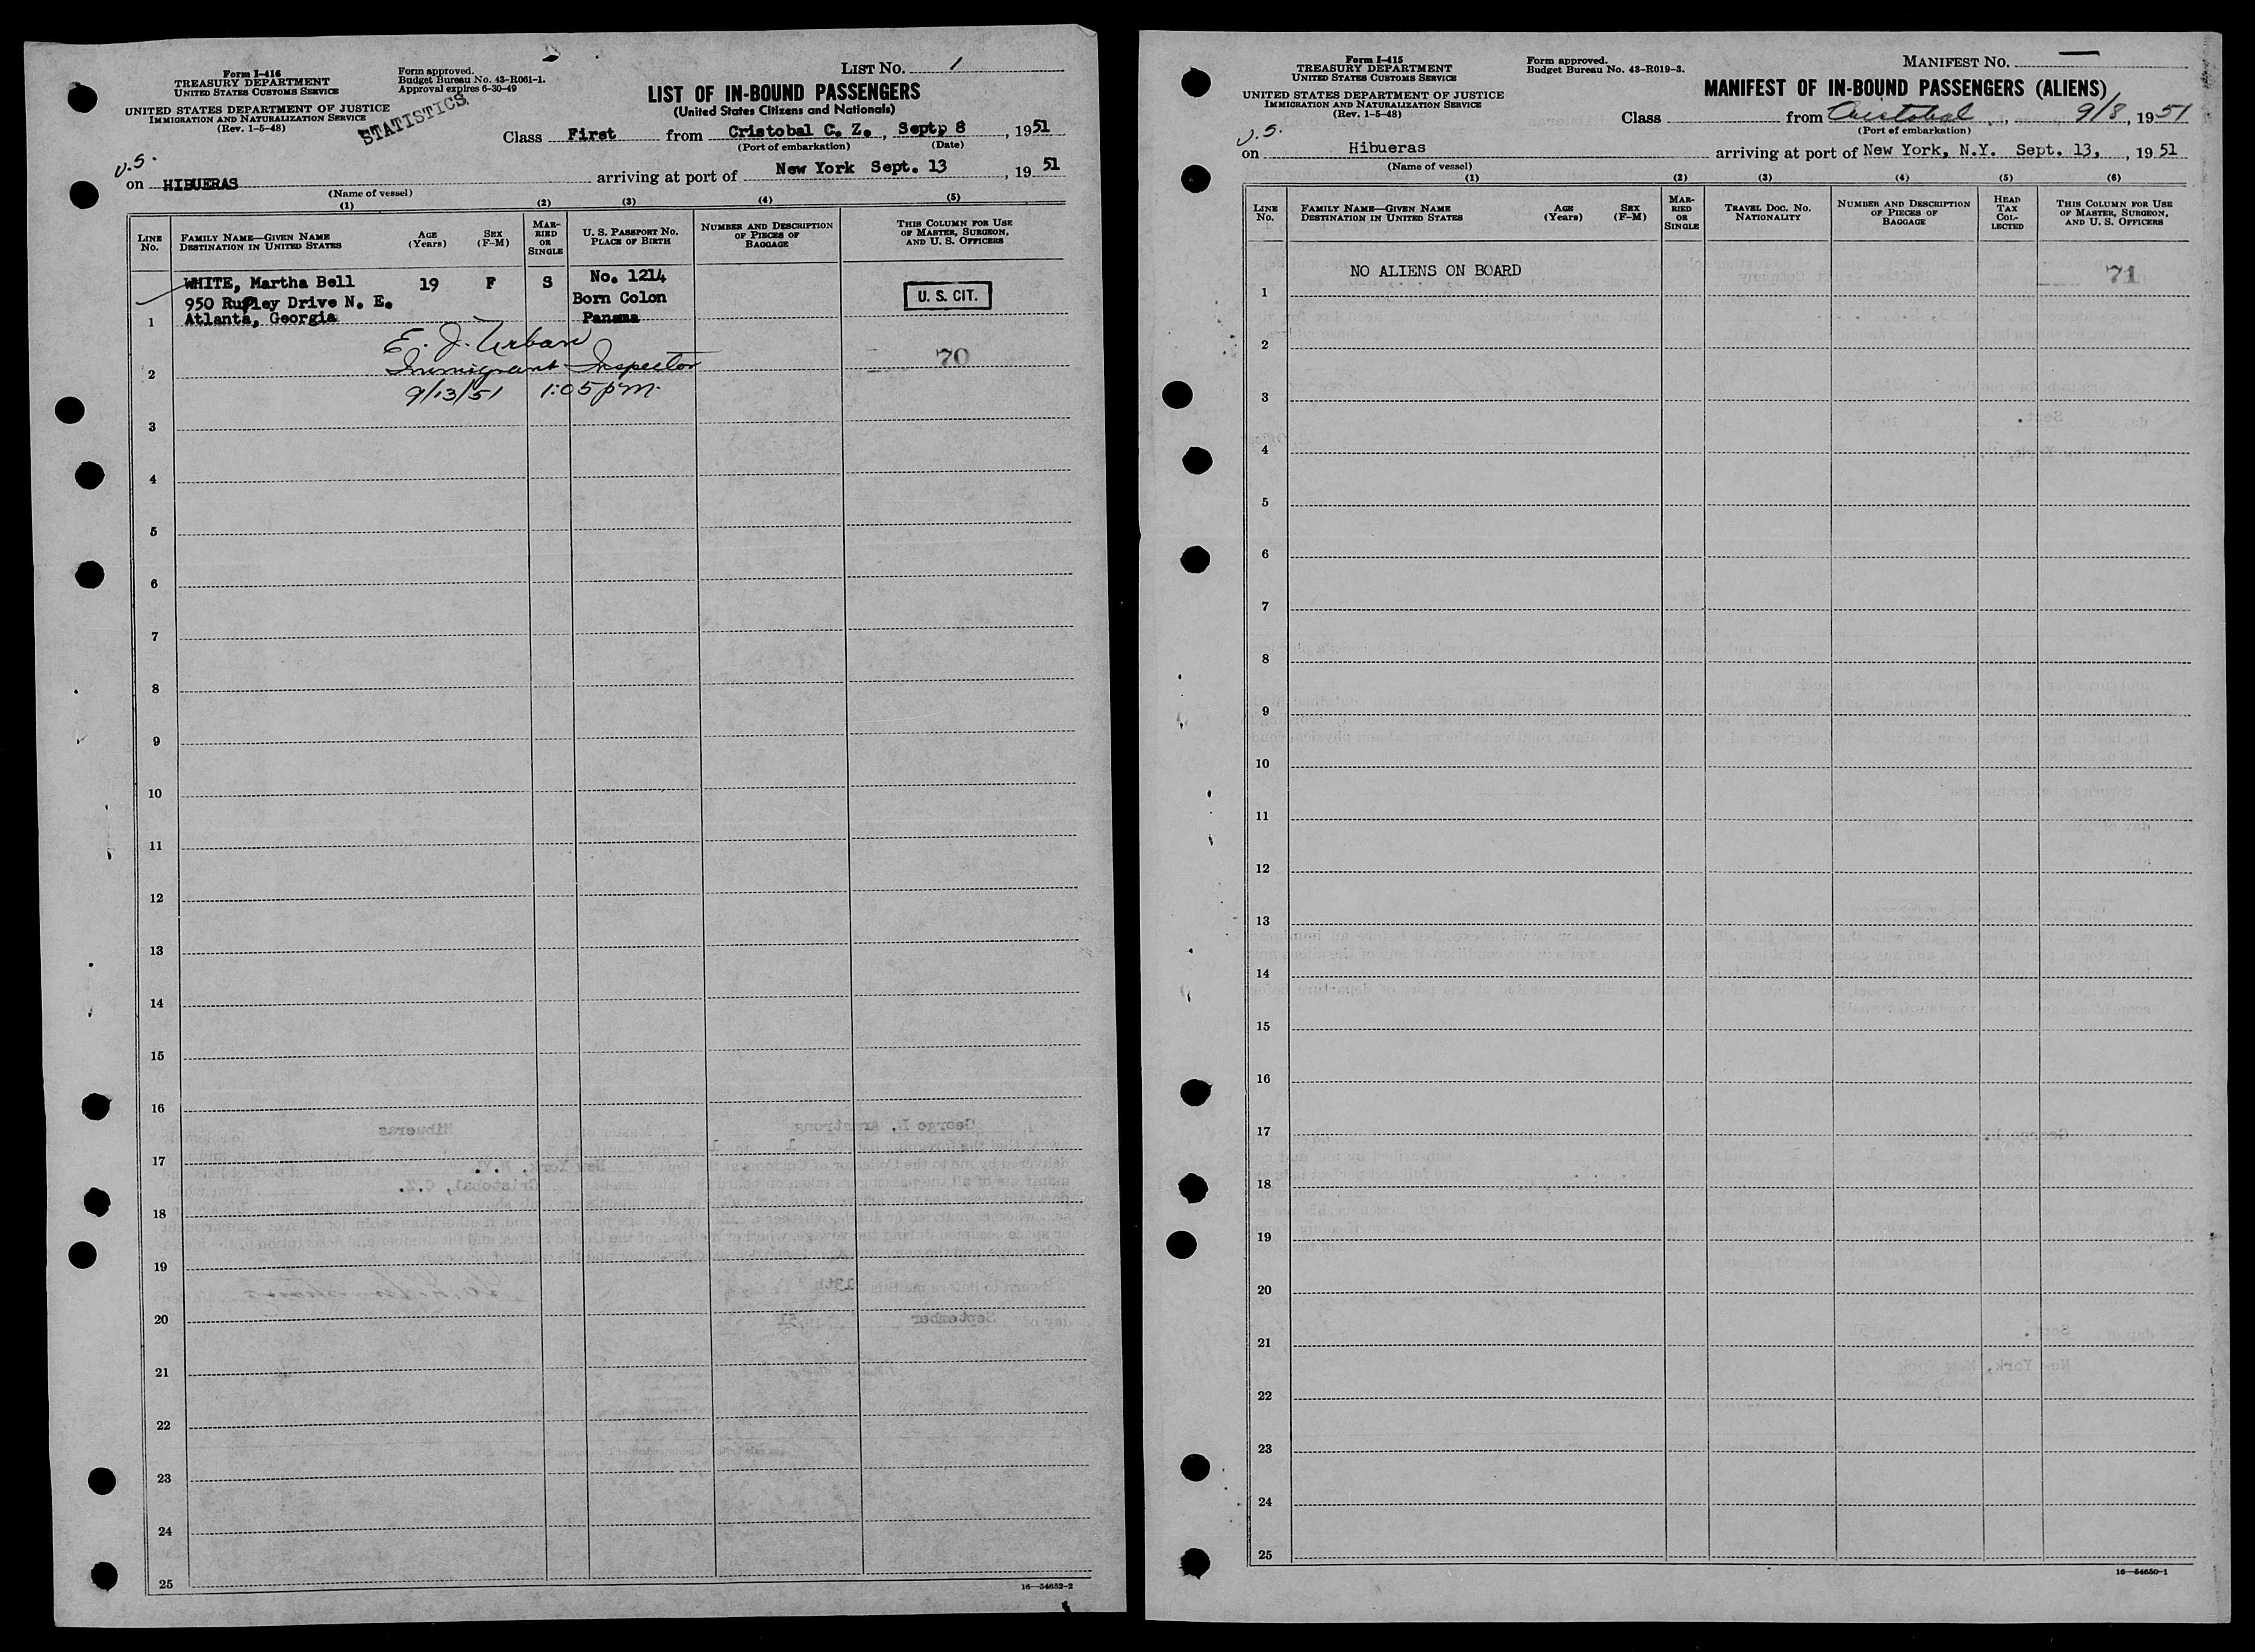 Form I-416
TREASURY DEPARTMENT
UNITED STATES CUSTOMS SERVICE
UNITED STATES DEPARTMENT OF JUSTICE
IMMIGRATION AND NATURALIZATION SERVICE
(Rev. 1-5-48)
Form approved.
Budget Bureau No. 43-R061-1.
Approval expires 6-30-49
STATISTICS
LIST NO. 1
LIST OF IN-BOUND PASSENGERS
(United States Citizens and Nationals)
Class First from Cristobal C. Z., Sept. 8, 1951
(Port of embarkation) (Date)
U.S.
on HIBUERAS arriving at port of New York Sept. 13, 19 51
(Name of vessel)
(1) (2) (3) (4) (5)
LINE No.
FAMILY NAME—GIVEN NAME
DESTINATION IN UNITED STATES
AGE (Years)
SEX (F-M)
MARRIED OR SINGLE
U. S. PASSPORT NO.
PLACE OF BIRTH
NUMBER AND DESCRIPTION OF PIECES OF BAGGAGE
THIS COLUMN FOR USE OF MASTER, SURGEON, AND U. S. OFFICERS
WHITE, Martha Bell 19 F S No. 1214
950 Rupley Drive N. E. Born Colon U. S. CIT.
1 Atlanta, Georgia Panama
E. J. Urban
2 Immigrant Inspector 70
9/13/51 1:05 pm.
3
4
5
6
7
8
9
10
11
12
13
14
15
16
17
18
19
20
21
22
23
24
25
16—54652-2
Form I-415
TREASURY DEPARTMENT
UNITED STATES CUSTOMS SERVICE
UNITED STATES DEPARTMENT OF JUSTICE
IMMIGRATION AND NATURALIZATION SERVICE
(Rev. 1-5-48)
Form approved.
Budget Bureau No. 43-R019-3.
MANIFEST NO. —
MANIFEST OF IN-BOUND PASSENGERS (ALIENS)
Class from Cristobal, 9/8, 1951
(Port of embarkation)
U.S.
on Hibueras arriving at port of New York, N.Y. Sept. 13, , 19 51
(Name of vessel)
(1) (2) (3) (4) (5) (6)
LINE No.
FAMILY NAME—GIVEN NAME
DESTINATION IN UNITED STATES
AGE (Years)
SEX (F-M)
MARRIED OR SINGLE
TRAVEL DOC. NO.
NATIONALITY
NUMBER AND DESCRIPTION OF PIECES OF BAGGAGE
HEAD TAX COLLECTED
THIS COLUMN FOR USE OF MASTER, SURGEON, AND U. S. OFFICERS
NO ALIENS ON BOARD 71
1
2
3
4
5
6
7
8
9
10
11
12
13
14
15
16
17
18
19
20
21
22
23
24
25
16—54650-1